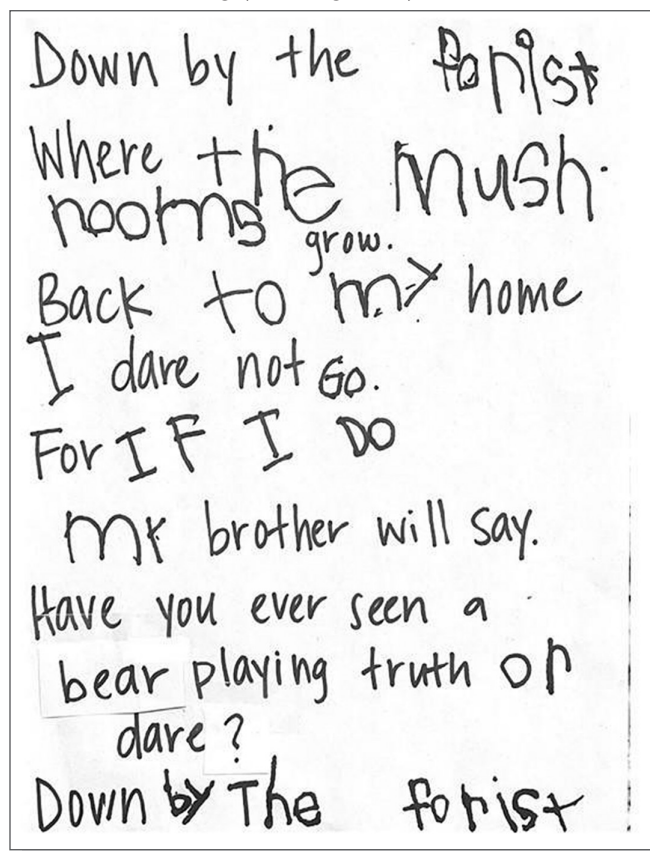 Down by the forist
Where the Mush
rooms grow.
Back to my home
I dare not Go.
For IF I DO
my brother will say.
Have you ever seen a
bear playing truth or
dare?
Down by The forist